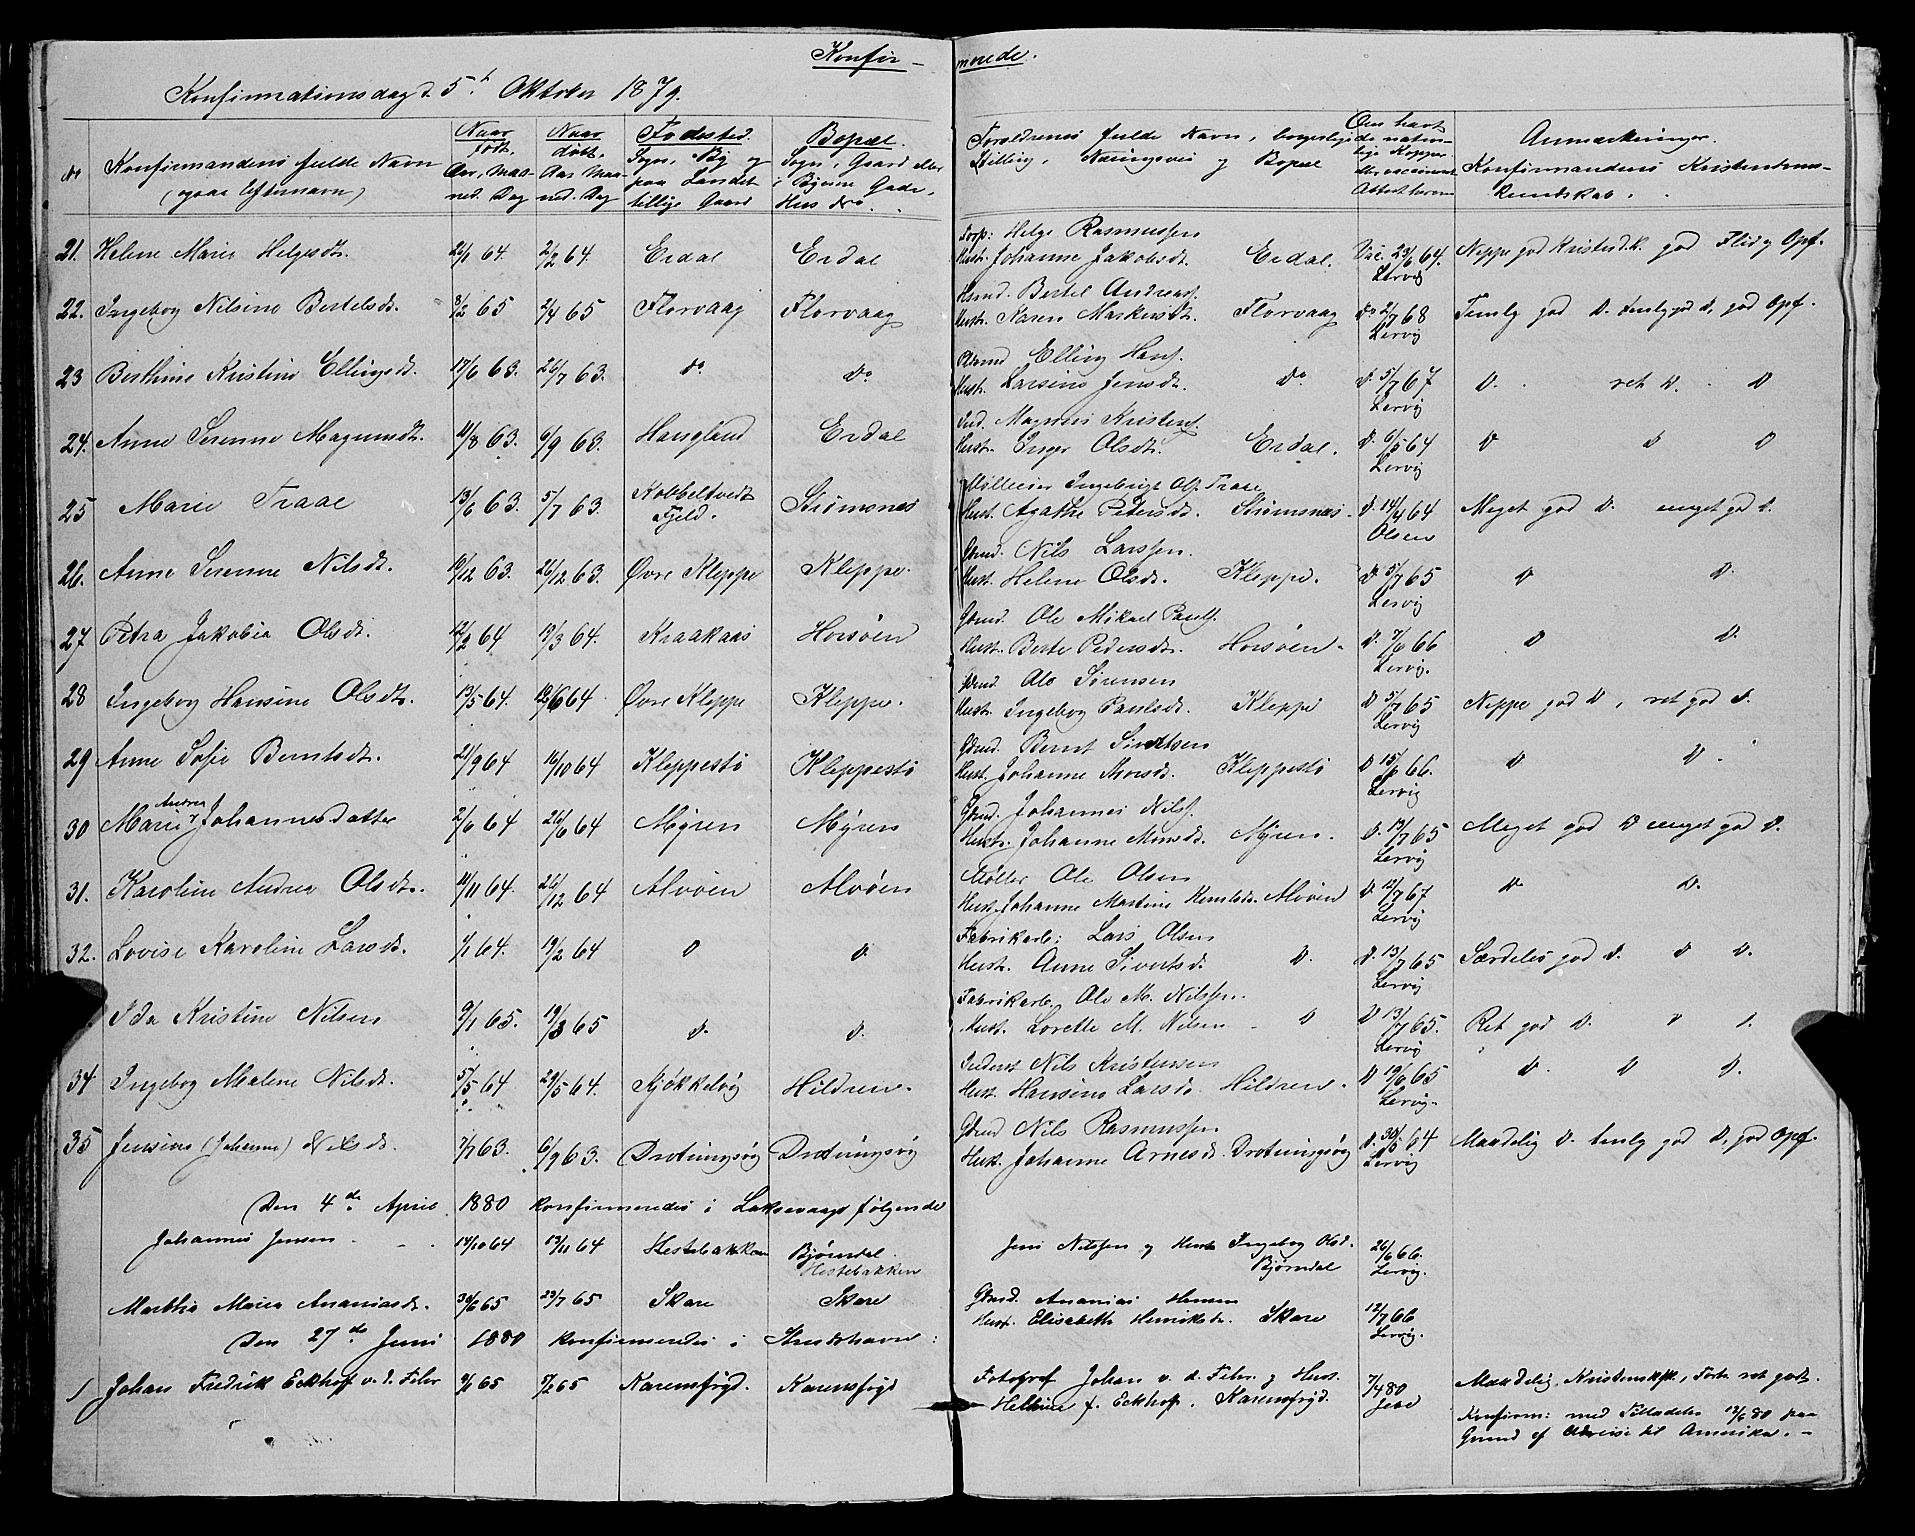 Konfir- merede.
Konfirmationsdag d. 5t Oktober 1879.
No Konfirmandens fulde Navn (ogsaa Efternavn) Naar født, Aar, Maaned, Dag Naar døbt, Aar, Maaned, Dag Fødested. Sogn, By og paa Landet tillige Gaard Bopæl. Sogn, Gaard eller i Byerne Gade, Hus No. Forældrenes fulde Navn, borgerlige Stilling, Næringsvei og Bopæl Den havt de naturlige Kopper eller vaccineret Attest herom Anmærkninger. Konfirmandens Kristendomskundskab.
21. Helene Marie Helgesdt. 64. 2/2 64. Erdal Erdal Forp: Helge Rasmussen
Hust. Johanne Jakobsdt. Erdal. Vac. 64. Neppe god Kristend.k. god Flid og Opf.
Lervig
22. Ingeborg Nilsine Bertelsdt. 8/2 65 2/4 65 Florvaag Florvaag Husmd. Bertel Andreass.
Hust. Karen Markusdt. Florvaag Do 2/7 68 Temlig god D. temlig god D, god Opf.
Lervig
23 Berthine Kristine Ellingsdt. 17/6 63. 26/7 63. do Do Elling Hans.
Hust. Larsine Jensdt. Do D. 5/7 67 D. ret D. D
Lervig
24. Anne Serenne Magnusdt. 11/8 63. 6/9 63. Haugland Erdal Ind. Magnus Kristens.
Hust. Inger Olsdt. Erdal. D. 6/5 64 D D D
Lervig
25 Marie Traae 13/6 63. 5/7 63. Kobbeltvedt Fjeld. Strømsnes Møllerier Ingebrigt Ols. Traae
Hust. Agathe Petersdt. Strømsnes. D. 14/4 64 Meget god D. meget god D.
Olsen
26. Anne Serenne Nilsdt. 10/12 63. 26/12 63. Øvre Kleppe Kleppe. Gbmd. Nils Larssen.
Hust. Helene Olsdt. Kleppe. D. 5/7 65 D D.
Lervig
27 Petra Jakobia Olsdt. 12/2 64 13/3 64. Kraakaas Horsøen Gbmd. Ole Mikael Pauls.
Hust. Berte Pedersdt. Horsøen. D. 7/6 66 D D.
Lervig.
28 Ingeborg Hansine Olsdt. 13/5 64. 12/6 64 Øvre Kleppe Kleppe. Gbmd. Ole Sørensen
Hust. Ingeborg Paulsdt. Kleppe D 5/7 65 Neppe god D, ret god D.
Lervig
29 Anne Sofie Berntsdt. 21/9 64 16/10 64 Kleppestø Kleppestø Gbmd. Bernt Sivertsen
Hust. Johanne Monsdt. Kleppestø D 15/6 66. D D.
Lervig
30 Marie Andrea Johannesdatter 2/6 64 26/6 64 Myren Myren Gbmd. Johannes Nils.
Hust. Johanne Monsdt. Myren. D. 13/7 65 Meget god D meget god D.
Lervig
31. Karoline Andrea Olsdt. 11/11 64. 26/12 64 Alvøen Alvøen Møller Ole Olsen
Hust. Johanne Martine Alvøen D. 12/7 67 D. D.
Lervig
32. Lovise Karoline Larsdt. 1/1 64. 19/2 64 D D. Fabrikarb: Lars Olsen
Hust. Anne Sivertsd. D. D. 13/7 65 Særdeles god D. D D.
Lervig
Ida Kristine Nilsen 9/1 65. 19/3 65 D. D. Fabrikarb. Ole M. Nilssen.
Hust. Lorette M. Nilsen D D 13/7 65. Ret god D. D D.
Lervig
34. Ingeborg Malene Nilsdt. 5/5 64 29/5 64. Skjøkkelvig Hildren. Inderst Nils Kristensen
Hust. Hansine Larsdt. Hildren. D 19/6 65 D. D D.
Lervig.
35 Jensine (Johanne) Nilsdt. 7/7 63. 6/9 63. Drotningsvig Drotningsvig Gbmd Nils Rasmussen
Hust. Johanne Arnesdt. Drotningsvig D. 64 Maadelig D. temlig god D, god Opf.
Lervig
Den 4de April 1880 konfirmeredes i Laksevaag følgende
Johannes Jensen 14/10 64 13/11 64 Hestebakken Bjørndal Hestebakken Jens Nilssen og Hust. Ingeborg Olsd. Bjørndal 26/6 66. Lervig.
Marthe Maria Ananiasdt. 30/6 65 23/7 65 Skare Skare Gbmd. Ananias Hansen
Hust. Elisabeth Henriksdt. Skare 12/7 66 Lervig.
Den 27de Juni 1880 konfirmeredes i Strudshavn:
1 Johan Fredrik Eckhof v. d. Fehr 9/1 65 7/2 65 Karensfryd. Karensfryd Fotograf Johan v. d. Fehr og Hust.
Helline f. Eckhof. Karensfryd. 7/4 80 Jebe Maadelig. Kristendsk., Forh. ret godt.
Konfirm: med Tilladelse 12/6 80 paa
Grund af Udreise til Amerika.